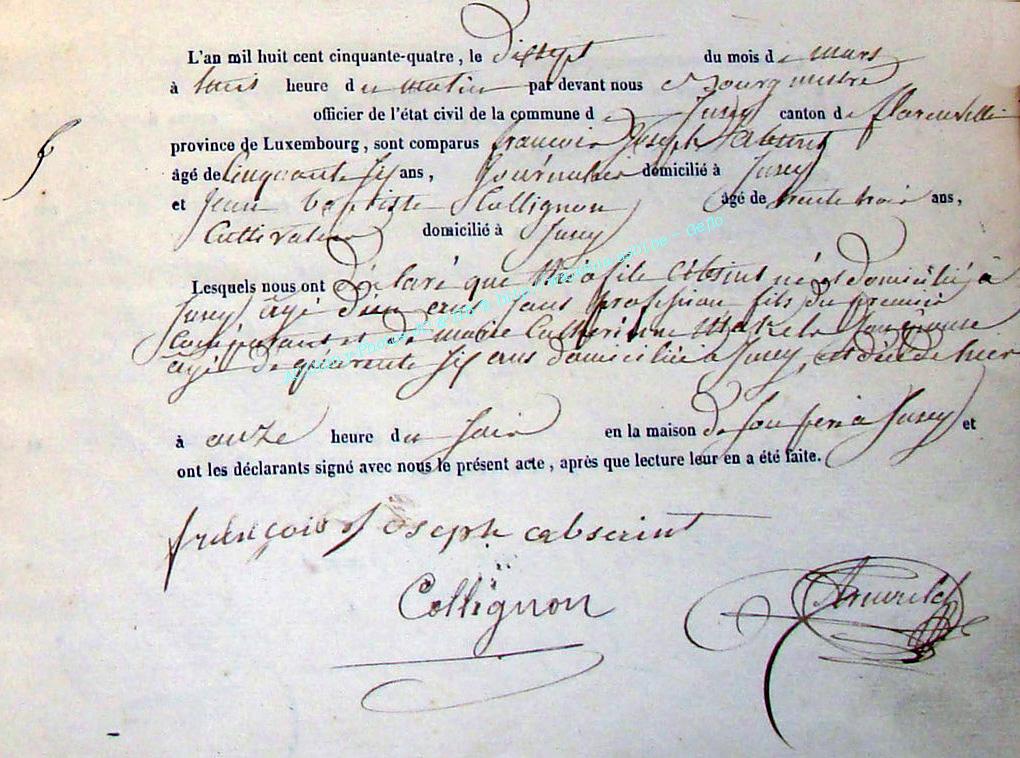 L'an mil huit cent cinquante-quatre, le dix sept du mois de mars
à huit heure du matin par devant nous Bourgmestre
officier de l'état civil de la commune de Jusey canton de florenville
province de Luxembourg, sont comparus francois Joseph absint
âgé de Cinquante six ans, Journalier domicilié à Jusey
et Jean baptiste Collignon âgé de trente trois ans,
Cultivateur domicilié à Jusey
Lesquels nous ont déclaré que théofile absint né et domicilié à
Jusey agé d'un ans sans profession fils du premier
Comparant et de marie Catherine son épouse
agé de quarente six ans domicilié a Jusey, est décédé hier
à onze heure du soir en la maison de son peri a Jusey et
ont les déclarants signé avec nous le présent acte, après que lecture leur en a été faite.
françois Joseph absaint
Collignon
6